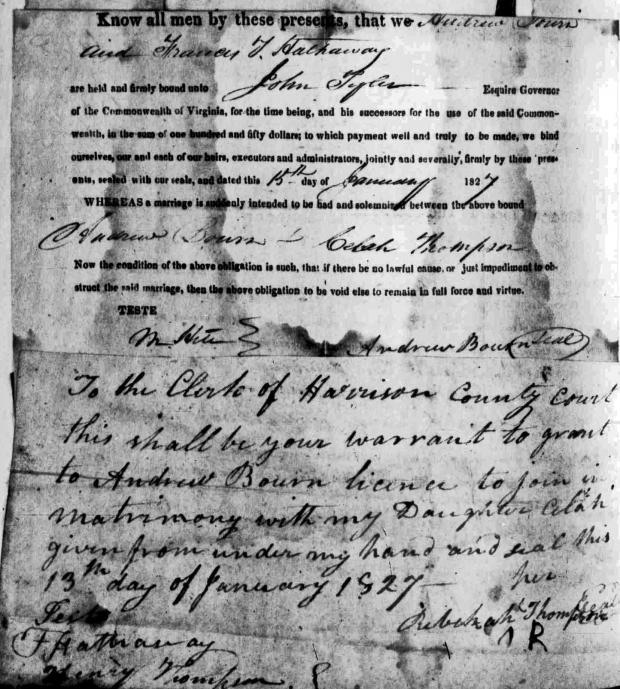 Know all men by these presents, that we Andrew Bourn
and Francis T. Hathaway
are held and firmly bound unto John Tyler Esquire Governor
of the Commonwealth of Virginia, for the time being, and his successors for the use of the said Common-
wealth, in the sum of one hundred and fifty dollars; to which payment well and truly to be made, we bind
ourselves, our and each of our heirs, executors and administrators, jointly and severally, firmly by these pres-
ents, sealed with our seals, and dated this 15th day of January 1827
WHEREAS a marriage is suddenly intended to be had and solemnized between the above bound
Andrew Bourn & Celah Thompson
Now the condition of the above obligation is such, that if there be no lawful cause, or just impediment to ob-
struct the said marriage, then the above obligation to be void else to remain in full force and virtue.
TESTE
Andrew Bourn Seal
To the Clerk of Harrison County Court
this shall be your warrant to grant
to Andrew Bourn licence to join in
matrimony with my Daughter Celah
given from under my hand and seal this
13th day of January 1827
her
Teste Rebekah Thompson
F Hathaway
Henry Thompson